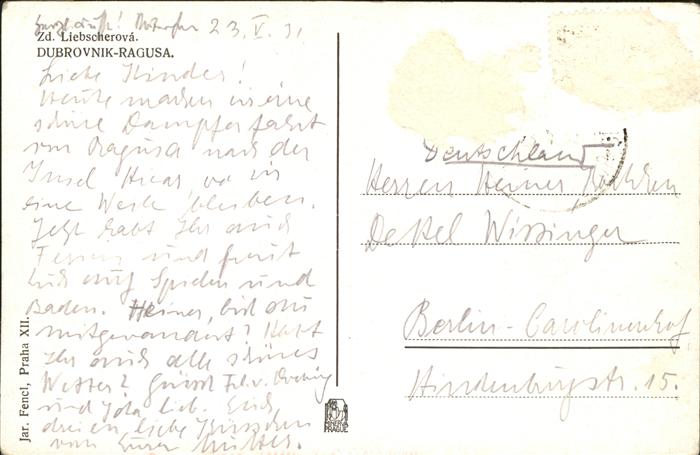 23. V. 31
Zd. Liebscherová.
DUBROVNIK-RAGUSA.
Liebe Kinder!
Heute machen wir eine
schöne Dampferfahrt
von Ragusa nach der
Insel wo wir
eine Weile bleiben.
Jetzt habt Ihr auch
Ferien und freut
Euch auf Spielen und
Baden. Heiner, bist du
mitgewandert? Habt
Ihr auch alle schönes
Wetter? Grüsst Frl. v.
und lieb. Euch
dreien liebe
von Eurer Mutter.
Jar. Fencl, Praha XII.
PRAGUE
Deutschland
Herren Heiner
Detlef Wissinger
Berlin-Carolinenhof
Hindenburgstr. 15.